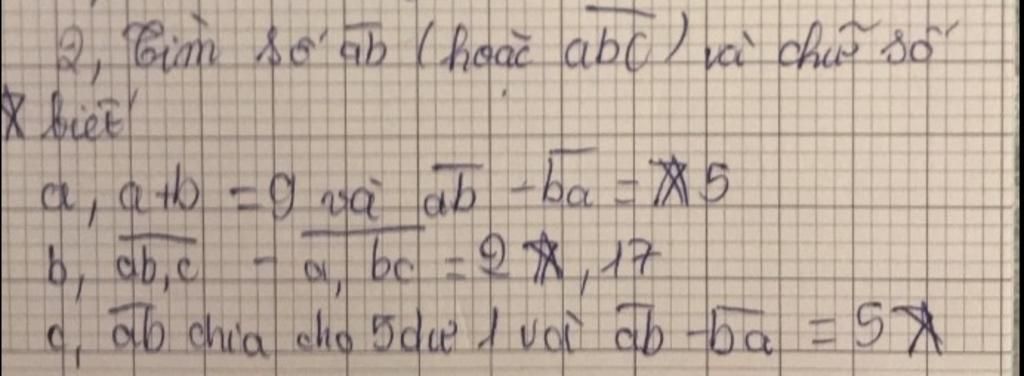 2, Tìm số ab (hoặc abc) và chữ số
* biết
a, a+b = 9 và ab - ba = *5
b, ab,c - a,bc = 2*,17
c, ab chia cho 5 dư 1 và ab - ba = 5*